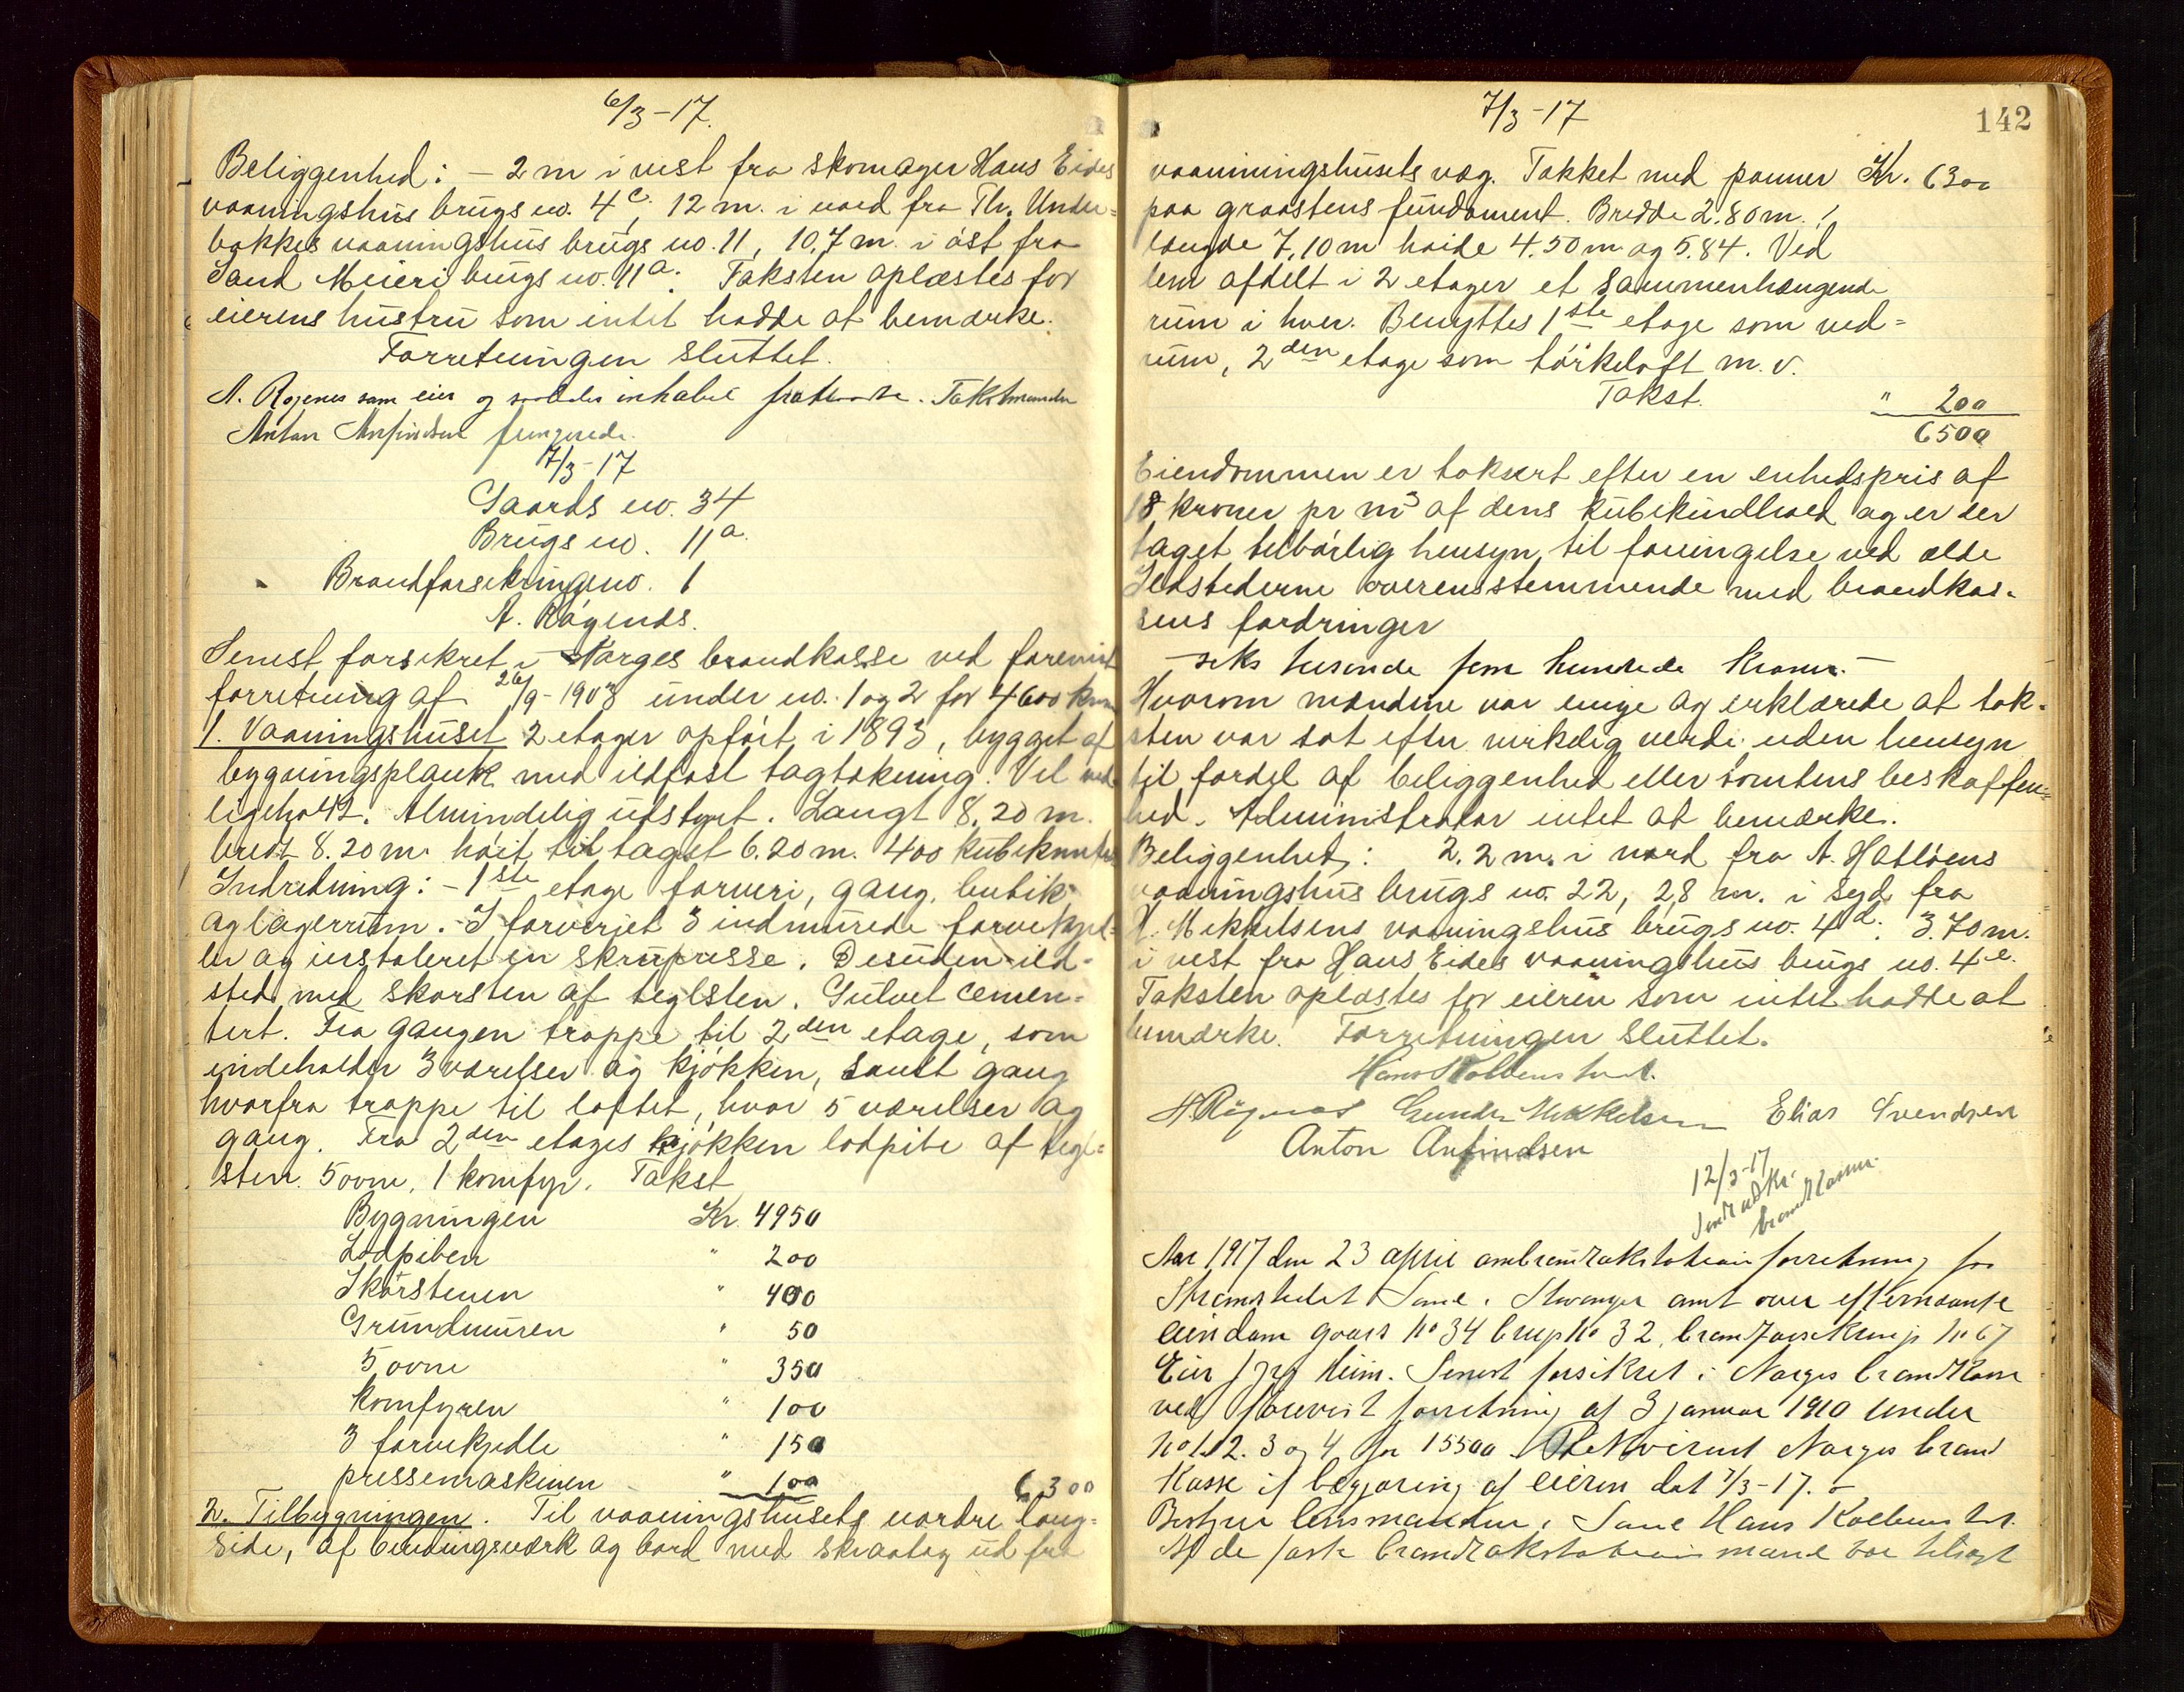 6/3-17.
Beliggenhed: - 2 m i vest fra skomager Hans Eides
vaaningshus brugs no. 4c, 12 m. i nord fra Th. Under=
bakkes vaaningshus brugs no. 11, 10,7 m. i øst fra
Sand Meieri brugs no. 11a. Taksten oplæstes for
eierens hustru som intet hadde at bemærke.
Forretningen sluttet.
A. Røgenes som eier og saaledes inhabil fratraadte. Takstmanden
Anton Anfindsen fungerede.
7/3-17
Gaards no. 34
Brugs no. 11a.
Brandforsikringsno. 1
A. Røgenæs.
Senest forsikret i Norges brandkasse ved forevist
forretning af 26/9-1903 under no. 1 og 2 for 4600 kroner
1. Vaaningshuset 2 etager opført i 1893, bygget af
bygningsplank med ildfast tagtækning. Vel ved
ligeholdt. Almindelig utstyrt. Langt 8.20 m.
bredt 8.20 m. høit til taget 6.20 m. 400 kubikmeter
Indredning: - 1ste etage farveri, gang, butik
og lagerrum. I farveriet 3 indmurede farvekjed=
ler og installeret en skrupresse. Desuden ild=
sted med skorsten af teglsten. Gulvet cemen=
tert. Fra gangen trappe til 2den etage, som
indeholder 3 værelser og kjøkken, samt gang
hvorfra trappe til loftet, hvor 5 værelser og
gang. Fra 2den etages kjøkken lodpibe af tegl=
sten. 5 ovne, 1 komfyr. Takst
Bygningen Kr. 4950
Lodpiben " 200
Skorstenen " 400
Grundmuren " 50
5 ovne " 350
Komfyren " 100
3 farvekjedle " 150
pressemaskinen " 100 6300
2. Tilbygningen. Til vaaningshusets nordre lang=
side, af bindingsværk og bord med skraatag ud fra
7/3-17
142
vaaningshusets væg. Takket med panner Kr. 6300
paa graastens fundament. Bredde 2.80 m.,
længde 7,10 m høide 4.50 m og 5.84. Ved
len afdelt i 2 etager et sammenhængende
rum i hver. Benyttes 1ste etage som ved=
rum, 2den etage som tørkeloft m.v.
Takst. " 200
6500
Eiendommen er taksert efter en enhedspris af
18 kroner pr m3 af dens kubikindhold og er der
taget tilbørlig hensyn til forringelse ved ælde
Ildstederne overensstemmende med brandkas=
sens fordringer
- seks tusende fem hundrede kroner. -
Hvorom mændene var enige og erklærede at tak=
sten var sat efter virkelig verdi uden hensyn
til fordel af beliggenhed eller tomtens beskaffen=
hed. Administrator intet at bemærke.
Beliggenhed: 2,2 m. i nord fra A. Hatløens
vaaningshus brugs no. 22, 2,8 m. i syd fra
N. Mikkelsens vaaningshus brugs no. 4d. 3.70 m.
i vest fra Hans Eides vaaningshus brugs no. 4e.
Taksten oplæstes for eieren som intet hadde at
bemærke. Forretningen sluttet.
Hans Kolbenstvedt.
A Røgenæs Gunder Mikkelsen Elias Svendsen
Anton Anfindsen
12/3-17
Sendt udskr.
brandkassen.
Aar 1917 den 23 april ombrandtakstationsforretning for
Strandstedet Sand i Stavanger amt over efternævnte
eiendom gaards no 34 brugs no 32, brandforsikrings no 67
Eier J Heim. Senest forsikret i Norges brandkasse
ved forevist forretning af 3 januar 1910 under
no 1. 2. 3 og 4 for 15500. Rekvirent Norges brand
kasse if begjæring af eieren dat 7/3-17.
Bestyrer lensmanden i Sand Hans Kolbenstvedt.
Af de faste brandtakstationsmænd var tilsagt